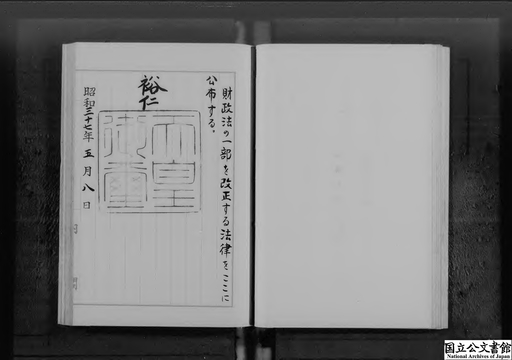 財政法の一部を改正する法律をここに
公布する。
裕仁
天皇
御璽
昭和三十七年五月八日
国立公文書館
National Archives of Japan